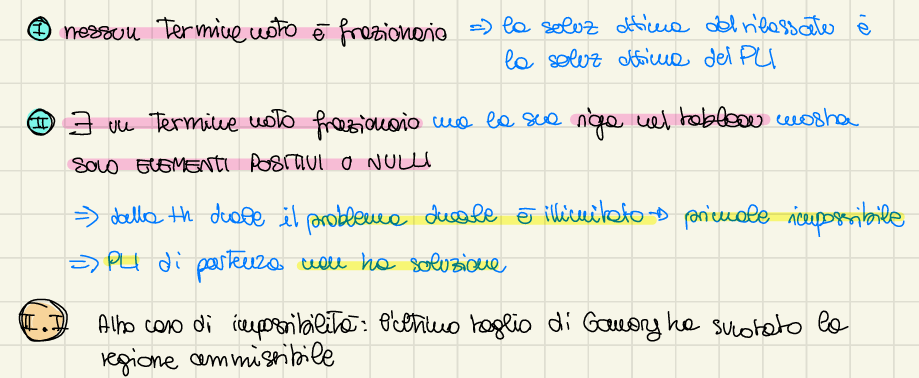 I nessun termine noto è frazionario => la soluz ottima del rilassato è
la soluz ottima del PLI
II ∃ un termine noto frazionario ma la sua riga nel tableau mostra
SOLO ELEMENTI POSITIVI O NULLI
=> dalla th duale il problema duale è illimitato → primale impossibile
=> PLI di partenza non ha soluzione
II.I Altro caso di impossibilità: l'ultimo taglio di Gomory ha svuotato la
regione ammissibile